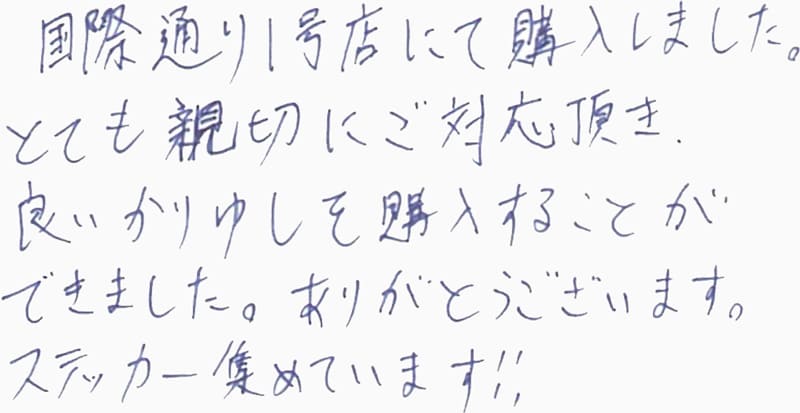 国際通り1号店にて購入しました。
とても親切にご対応頂き、
良いかりゆしを購入することが
できました。ありがとうございます。
ステッカー集めています!!